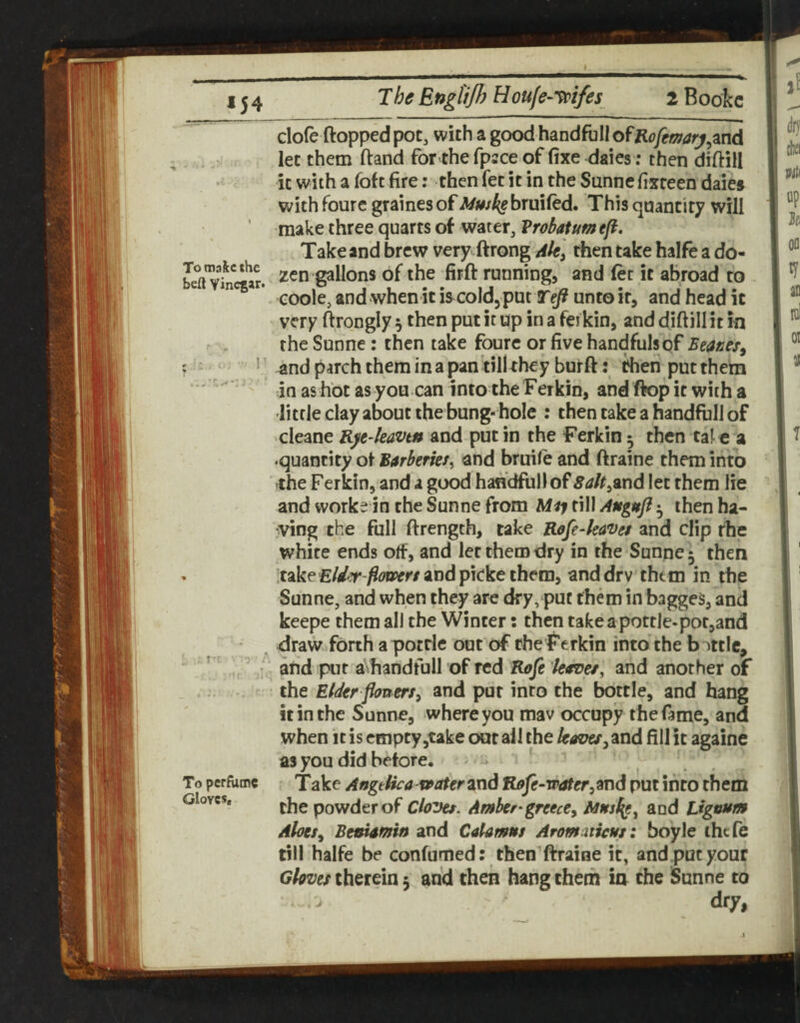 154 The Engliſh Houſe-wifes 2 Booke
cloſe ſtopped pot, with a good handfull of Roſemary, and
let them ſtand for the ſpace of ſixe daies: then diſtill
it with a ſoft fire: then ſet it in the Sunne ſixteen daies
with foure graines of Muske bruiſed. This quantity will
make three quarts of water, Probatum eſt.
To make the
beſt Vinegar.
Take and brew very ſtrong Ale, then take halfe a do-
zen gallons of the firſt running, and ſet it abroad to
coole, and when it is cold, put Yeſt unto it, and head it
very ſtrongly; then put it up in a ferkin, and diſtill it in
the Sunne: then take foure or five handfuls of Beanes,
and parch them in a pan till they burſt: then put them
in as hot as you can into the Ferkin, and ſtop it with a
little clay about the bung-hole: then take a handfull of
cleane Rye-leaven and put in the Ferkin; then take a
quantity of Barberies, and bruiſe and ſtraine them into
the Ferkin, and a good handfull of Salt, and let them lie
and worke in the Sunne from May till Auguſt; then ha-
ving the full ſtrength, take Roſe-leaves and clip the
white ends off, and let them dry in the Sunne; then
take Elder-flowers and picke them, and dry them in the
Sunne, and when they are dry, put them in bagges, and
keepe them all the Winter: then take a pottle-pot, and
draw forth a pottle out of the Ferkin into the bottle,
and put a handfull of red Roſe leaves, and another of
the Elder flowers, and put into the bottle, and hang
it in the Sunne, where you may occupy the ſame, and
when it is empty, take out all the leaves, and fill it againe
as you did before.
To perfume
Gloves.
Take Angelica-water and Roſe-water, and put into them
the powder of Cloves. Amber-greece, Muske, and Lignum
Aloes, Beniamin and Calamus Aromaticus: boyle theſe
till halfe be conſumed: then ſtraine it, and put your
Gloves therein; and then hang them in the Sunne to
dry,